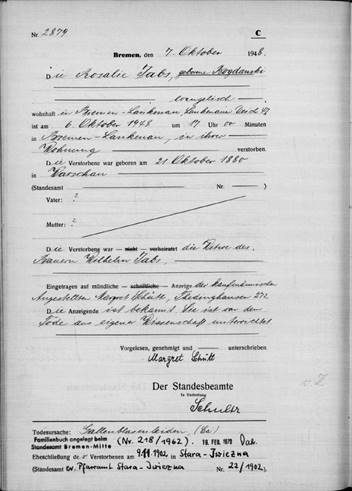 Nr. 2879 C
Bremen, den 7. Oktober 1948.
Die Rosalie Jabs, geborene Bogdanski
evangelisch
wohnhaft in Bremen-Lankenau, Lankenauer Deich 47
ist am 6. Oktober 1948 um 17 Uhr 00 Minuten
in Bremen-Lankenau, in ihrer
Wohnung verstorben.
Die Verstorbene war geboren am 21. Oktober 1880
in Warschau
(Standesamt Nr. )
Vater: ?
Mutter: ?
Die Verstorbene war nicht verheiratet die Witwe des
Bauern Wilhelm Jabs.
Eingetragen auf mündliche schriftliche Anzeige der kaufmännischen
Angestellten Margret Schütt, Thedinghauser 272
Die Anzeigende ist bekannt. Sie ist von dem
Tode aus eigener Wissenschaft unterrichtet
Vorgelesen, genehmigt und unterschrieben
Margret Schütt
Der Standesbeamte
In Vertretung
Todesursache: Gallenblasenleiden (Ca)
Familienbuch angelegt beim
Standesamt Bremen-Mitte (Nr. 218/1962). 16. FEB. 1970
Eheschließung de verstorbenen am 9.11.1902 in Stara-Iwiczna
(Standesamt ev. Pfarramt Stara-Iwiczna Nr. 22/1902)